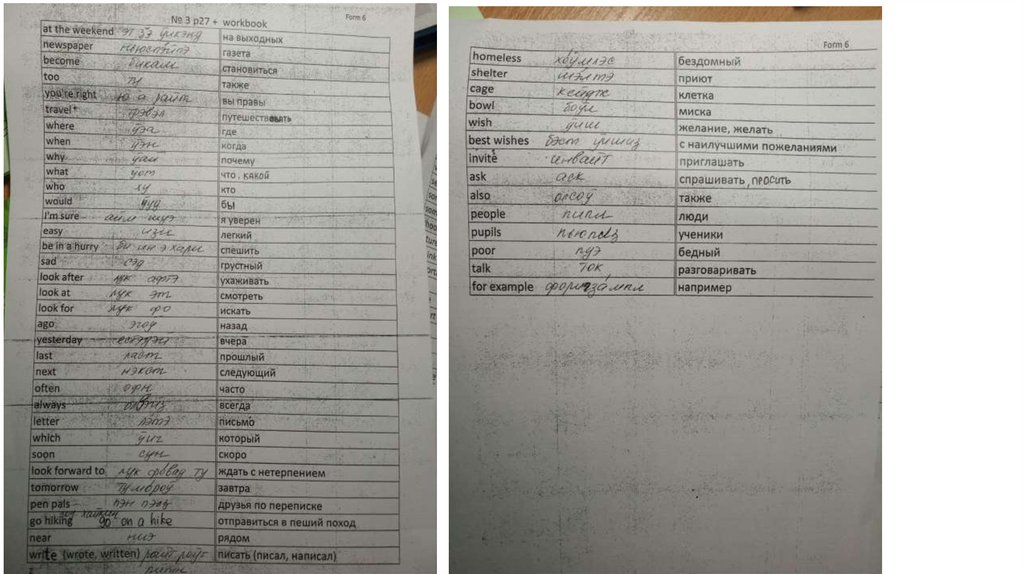 № 3 p27 + workbook
Form 6
at the weekend эт зэ уикэнд на выходных
newspaper ньюспэйпэ газета
become бикам становиться
too ту также
you're right ю а райт вы правы
travel трэвэл путешествовать
where уэа где
when уэн когда
why уай почему
what уот что, какой
who ху кто
would вуд бы
I'm sure айм шуэ я уверен
easy изи легкий
be in a hurry би ин э хари спешить
sad сэд грустный
look after лук афтэ ухаживать
look at лук эт смотреть
look for лук фо искать
ago эгоу назад
yesterday естэдэй вчера
last ласт прошлый
next нэкст следующий
often офн часто
always всегда
letter лэтэ письмо
which уич который
soon сун скоро
look forward to лук фовад ту ждать с нетерпением
tomorrow тумороу завтра
pen pals пэн пэлз друзья по переписке
go hiking гоу хайкин go on a hike отправиться в пеший поход
near ниэ рядом
write (wrote, written) райт роут писать (писал, написал)
ритон
Form 6
homeless хоумлэс бездомный
shelter шэлтэ приют
cage кейдж клетка
bowl боул миска
wish уиш желание, желать
best wishes бэст уишиз с наилучшими пожеланиями
invite инвайт приглашать
ask аск спрашивать, просить
also олсоу также
people пипл люди
pupils пьюпилз ученики
poor пуэ бедный
talk ток разговаривать
for example фориг'зампл например